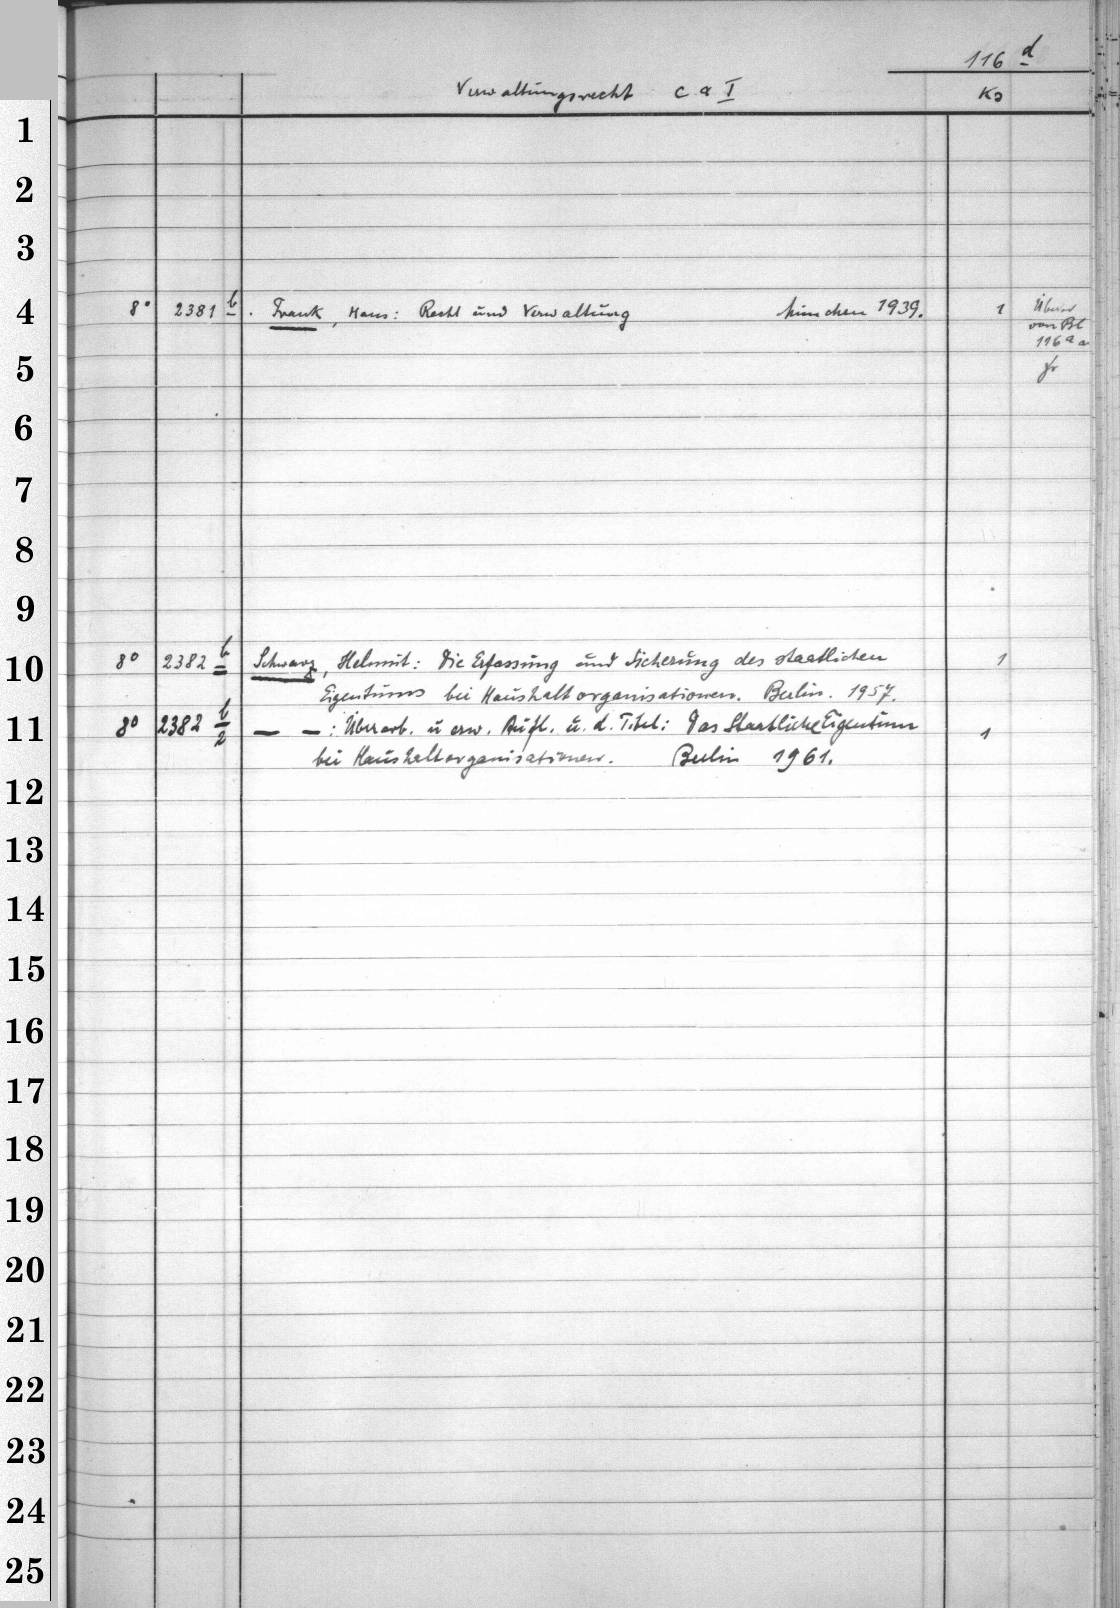 116 d
Verwaltungsrecht c a I
Ko
1
2
3
4
8° 2381 b. Frank, Hans: Recht und Verwaltung München 1939. 1
von Bl
116 a a
5
6
7
8
9
10
8° 2382 b Schwarz, Helmut: Die Erfassung und Sicherung des staatlichen 1
Eigentums bei Haushaltorganisationen. Berlin. 1957.
11
8° 2382 b/2 — — : Überarb. u erw. Aufl. u. d. Titel: Das Staatliche Eigentum 1
bei Haushaltorganisationen. Berlin 1961.
12
13
14
15
16
17
18
19
20
21
22
23
24
25